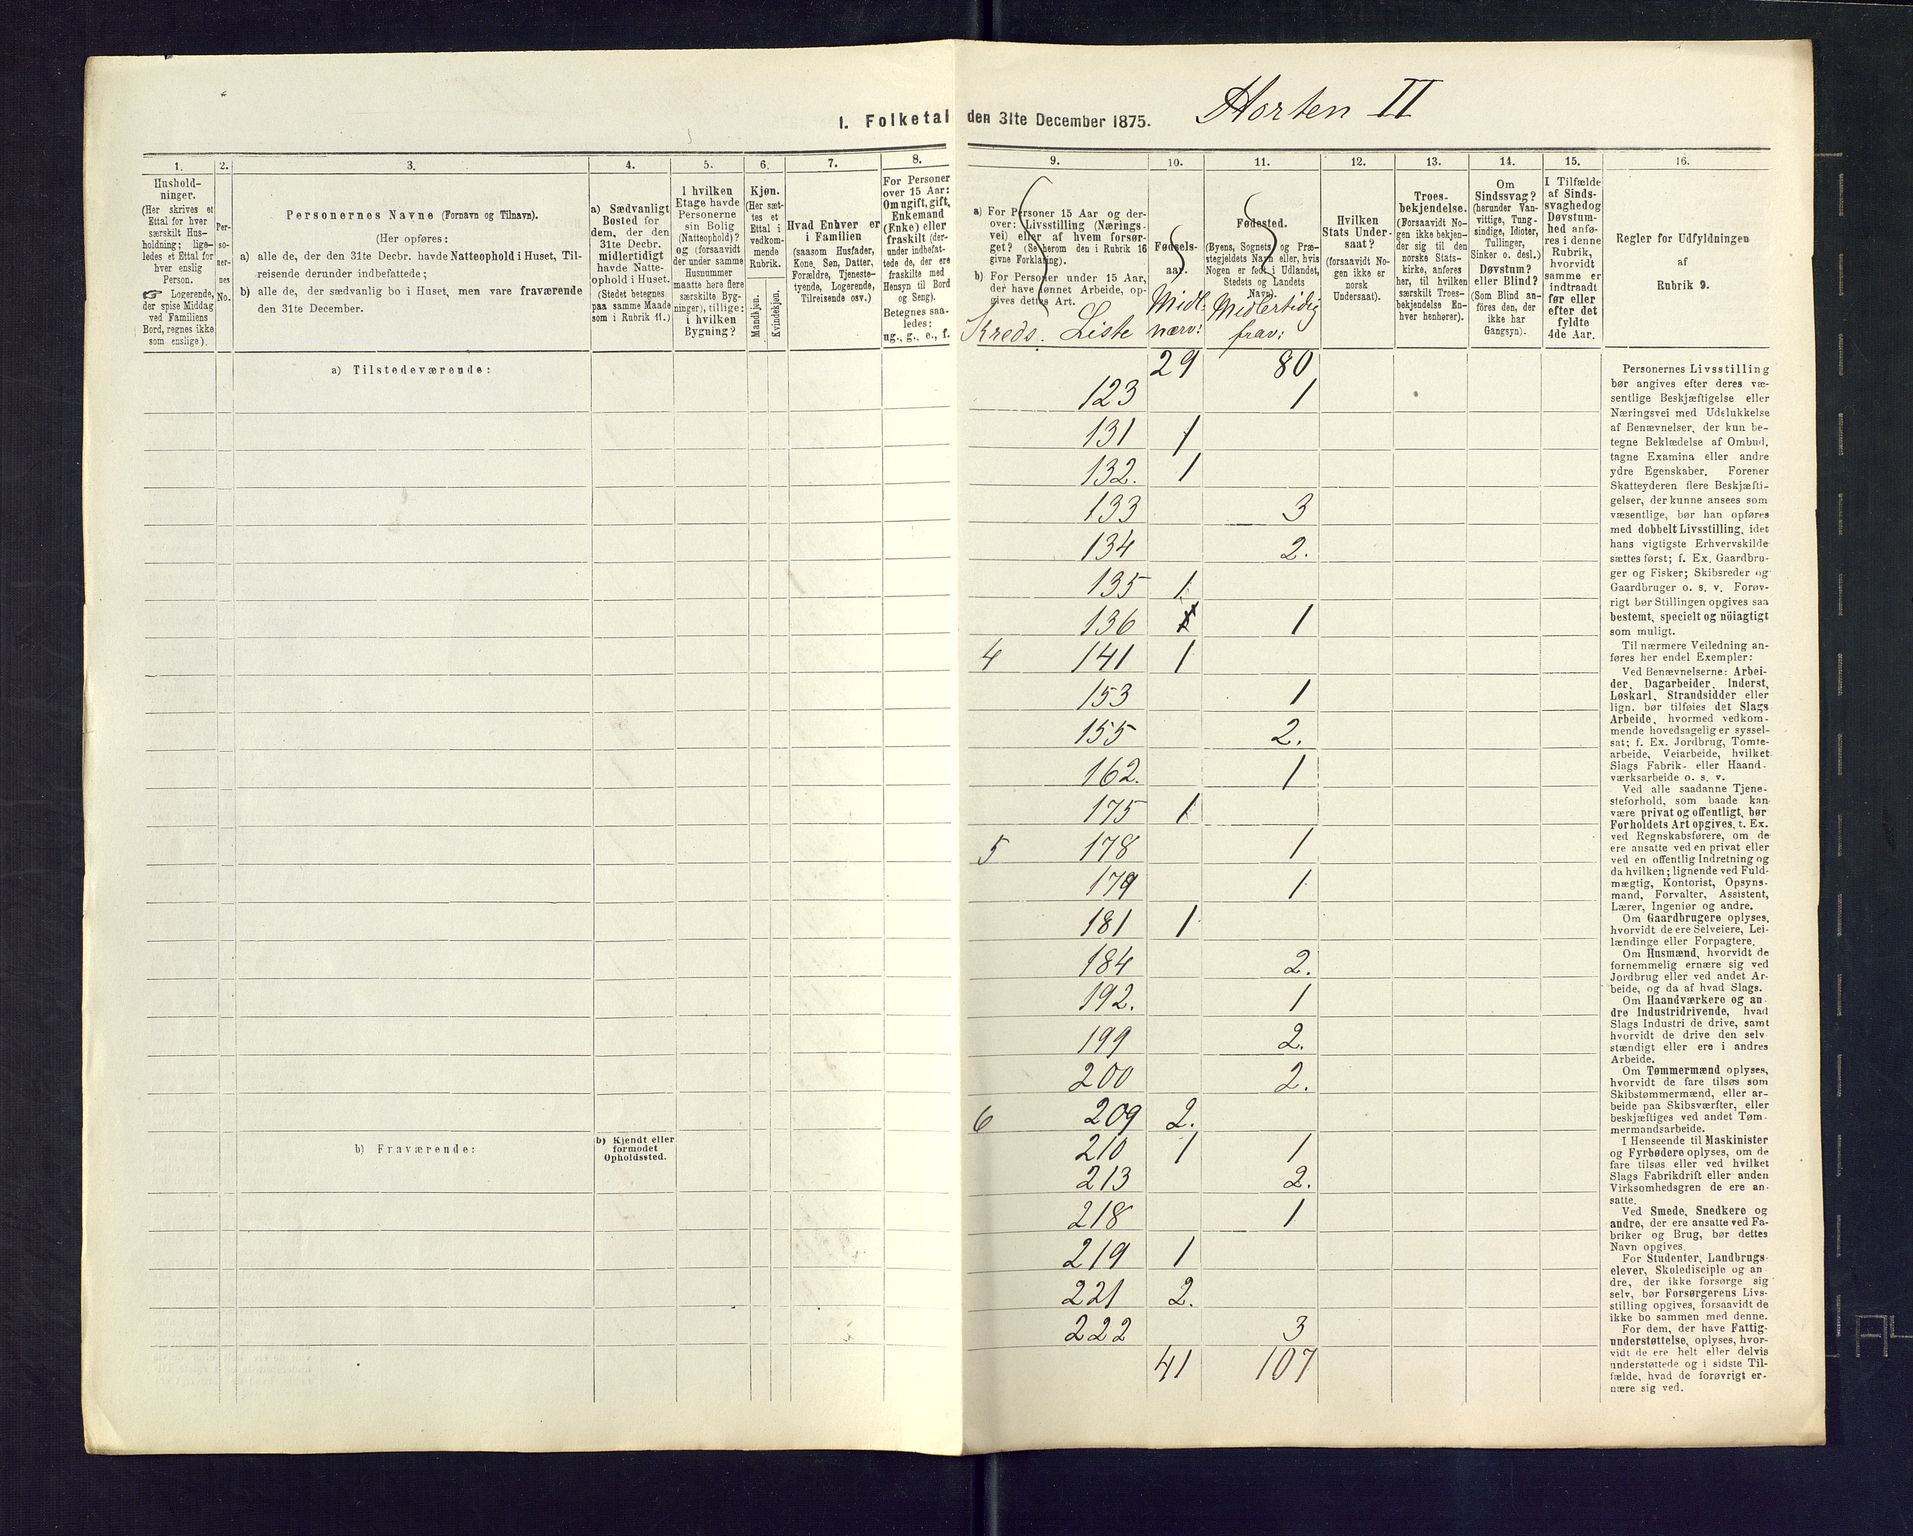 Horten II
1. Folketal den 31te December 1875.
1.
2.
3.
4.
5.
6.
7.
8.
9.
10.
11.
12.
13.
14.
15.
16.
Hushold-
ninger.
(Her skrives et
Ettal for hver
særskilt Hus-
holdning; lige-
ledes et Ettal for
hver enslig
Person.
☞ Logerende,
der spise Middag
ved Familiens
Bord, regnes ikke
som enslige).
Per-
so-
ner-
nes
No.
Personernes Navne (Fornavn og Tilnavn).
(Her opføres:
a) alle de, der den 31te Decbr. havde Natteophold i Huset, Til-
reisende derunder indbefattede;
b) alle de, der sædvanlig bo i Huset, men vare fraværende
den 31te December.
a) Sædvanligt
Bosted for
dem, der den
31te Decbr.
midlertidigt
havde Natte-
ophold i Huset.
(Stedet betegnes
paa samme Maade
som i Rubrik 11.)
I hvilken
Etage havde
Personerne
sin Bolig
(Natteophold)?
og (forsaavidt
der under samme
Husnummer
maatte høre flere
særskilte Byg-
ninger), tillige:
i hvilken
Bygning?
Kjøn.
(Her sæt-
tes et
Ettal i
vedkom-
mende
Rubrik.
Mandkjøn.
Kvindekjøn.
Hvad Enhver er
i Familien
(saasom Husfader,
Kone, Søn, Datter,
Forældre, Tjeneste-
tyende, Logerende,
Tilreisende osv.)
For Personer
over 15 Aar:
Om ugift, gift,
Enkemand
(Enke) eller
fraskilt (der-
under indbefat-
tede de, der ere
fraskilte med
Hensyn til Bord
og Seng).
Betegnes saa-
ledes:
ug., g., e., f.
a) For Personer 15 Aar og der-
over: Livsstilling (Nærings-
vei) eller af hvem forsør-
get? (Se herom den i Rubrik 16
givne Forklaring).
b) For Personer under 15 Aar,
der have lønnet Arbeide, op-
gives dettes Art.
Kreds. Liste
Fødsels-
aar.
Midl.
nærv:
Fødested.
(Byens, Sognets og Præ-
stegjeldets Navn eller, hvis
Nogen er født i Udlandet,
Stedets og Landets
Navn).
Midlertidig
frav:
Hvilken
Stats Under-
saat?
(forsaavidt No-
gen ikke er
norsk
Undersaat).
Troes-
bekjendelse.
(Forsaavidt No-
gen ikke bekjen-
der sig til den
norske Stats-
kirke, anføres
her, til hvilken
særskilt Troes-
bekjendelse En-
hver henhører).
Om
Sindssvag?
(herunder Van-
vittige, Tung-
sindige, Idioter,
Tullinger,
Sinker o. desl.)
Døvstum?
eller Blind?
(Som Blind an-
føres den, der
ikke har
Gangsyn).
I Tilfælde
af Sinds-
svaghed og
Døvstum-
hed anfø-
res i denne
Rubrik,
hvorvidt
samme er
indtraadt
før eller
efter det
fyldte
4de Aar.
Regler for Udfyldningen
af
Rubrik 9.
a) Tilstedeværende:
29 80
123 1
131 1
132. 1
133 3
134 2.
135 1
136 1
4 141 1
153 1
155 2.
162. 1
175 1
5 178 1
179 1
181 1
184 2.
192. 1
199 2.
200 2.
6 209 2.
b) Fraværende:
b) Kjendt eller
formodet
Opholdssted.
210 1 1
213 2.
218 1
219 1
221 2.
222 3
41 107
Personernes Livsstilling
bør angives efter deres væ-
sentlige Beskjæftigelse eller
Næringsvei med Udelukkelse
af Benævnelser, der kun be-
tegne Beklædelse af Ombud,
tagne Examina eller andre
ydre Egenskaber. Forener
Skatteyderen flere Beskjæfti-
gelser, der kunne ansees som
væsentlige, bør han opføres
med dobbelt Livsstilling, idet
hans vigtigste Erhvervskilde
sættes først; f. Ex. Gaardbru-
ger og Fisker; Skibsreder og
Gaardbruger o. s. v. Forøv-
rigt bør Stillingen opgives saa
bestemt, specielt og nöiagtigt
som muligt.
Til nærmere Veiledning an-
føres her endel Exempler:
Ved Benævnelserne: Arbei-
der, Dagarbeider, Inderst,
Løskarl, Strandsidder eller
lign. bør tilføies det Slags
Arbeide, hvormed vedkom-
mende hovedsagelig er syssel-
sat; f. Ex. Jordbrug, Tomte-
arbeide, Veiarbeide, hvilket
Slags Fabrik- eller Haand-
værksarbeide o. s. v.
Ved alle saadanne Tjene-
steforhold, som baade kan
være privat og offentligt, bør
Forholdets Art opgives, t. Ex.
ved Regnskabsførere, om de
ere ansatte ved en privat eller
ved en offentlig Indretning og
da hvilken; lignende ved Fuld-
mægtig, Kontorist, Opsyns-
mand, Forvalter, Assistent,
Lærer, Ingeniør og andre.
Om Gaardbrugere oplyses,
hvorvidt de ere Selveiere, Lei-
lændinge eller Forpagtere.
Om Husmænd, hvorvidt de
fornemmelig ernære sig ved
Jordbrug eller ved andet Ar-
beide, og da af hvad Slags.
Om Haandværkere og an-
dre Industridrivende, hvad
Slags Industri de drive, samt
hvorvidt de drive den selv-
stændigt eller ere i andres
Arbeide.
Om Tømmermænd oplyses,
hvorvidt de fare tilsøs som
Skibstømmermænd, eller ar-
beide paa Skibsværfter, eller
beskjæftiges ved andet Tøm-
mermandsarbeide.
I Henseende til Maskinister
og Fyrbødere oplyses, om de
fare tilsøs eller ved hvilket
Slags Fabrikdrift eller anden
Virksomhedsgren de ere an-
satte.
Ved Smede, Snedkere og
andre, der ere ansatte ved Fa-
briker og Brug, bør dettes
Navn opgives.
For Studenter, Landbrugs-
elever, Skoledisciple og an-
dre, der ikke forsørge sig
selv, bør Forsørgerens Livs-
stilling opgives, forsaavidt de
ikke bo sammen med denne.
For dem, der have Fattig-
understøttelse, oplyses, hvor-
vidt de ere helt eller delvis
understøttede og i sidste Til-
fælde, hvad de forøvrigt er-
nære sig ved.